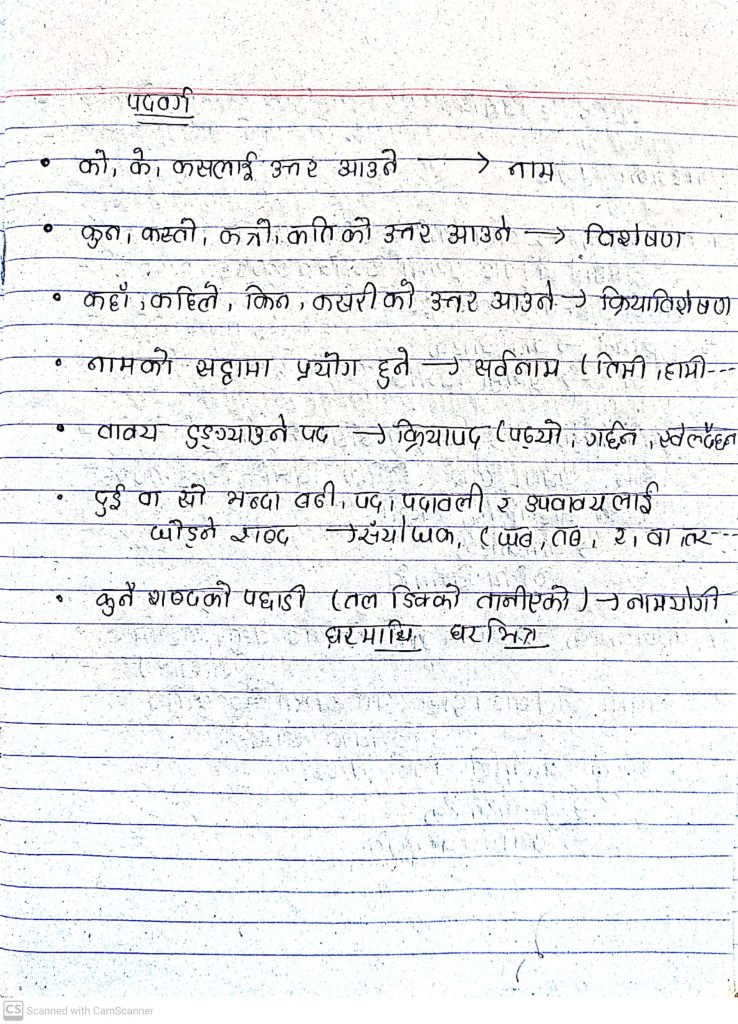 पदवर्ग
• को, के, कसलाई उत्तर आउने → नाम
• कुन, कस्तो, कत्रो, कति को उत्तर आउने → विशेषण
• कहाँ, कहिले, किन, कसरी को उत्तर आउने → क्रियाविशेषण
• नामको सट्टामा प्रयोग हुने → सर्वनाम ( तिमी, हामी---
• वाक्य टुङ्ग्याउने पद → क्रियापद (पढ्यो, गर्छन, खेल्दैछन
• दुई वा सो भन्दा बढी, पद, पदावली र उपवाक्यलाई
जोड्ने शब्द → संयोजक, ( जब, तब, र, वा, तर--
• कुनै शब्दको पछाडी (तल डिक्को तानीएको) → नामयोगी
घरमाथि घरभित्र
CS Scanned with CamScanner